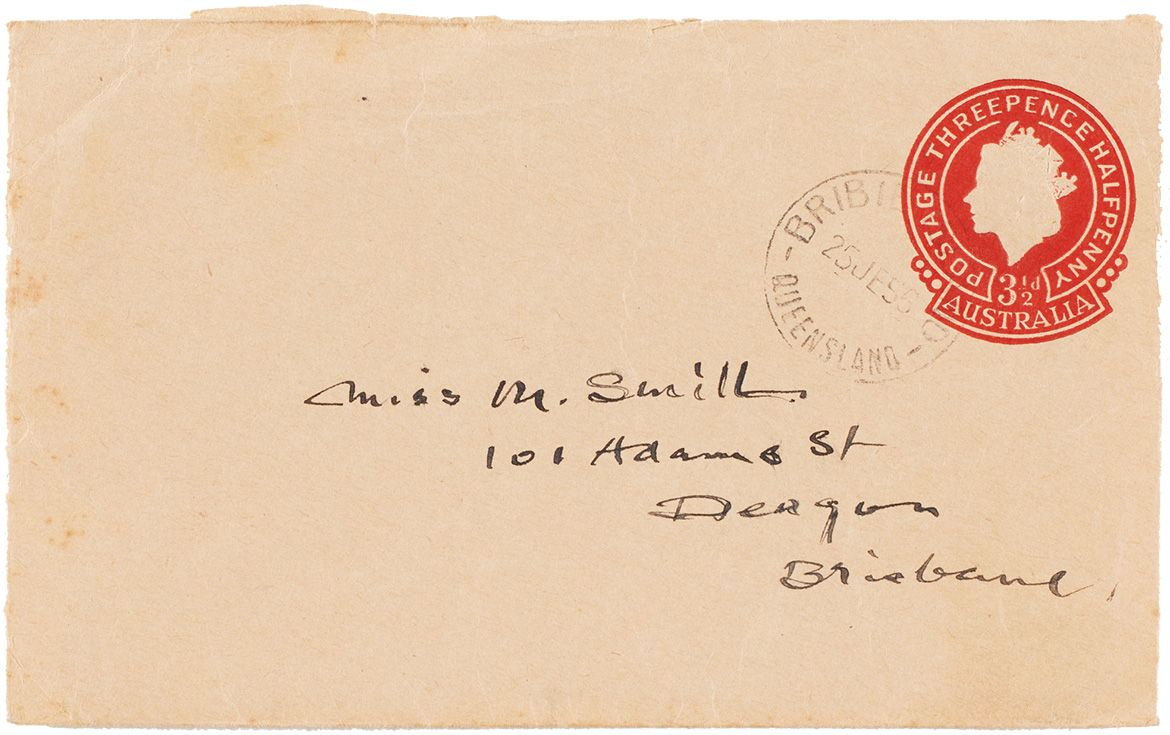 POSTAGE THREEPENCE HALFPENNY
3½d
AUSTRALIA
QUEENSLAND
Miss M. Smith.
101 Adams St
Deagon
Brisbane,